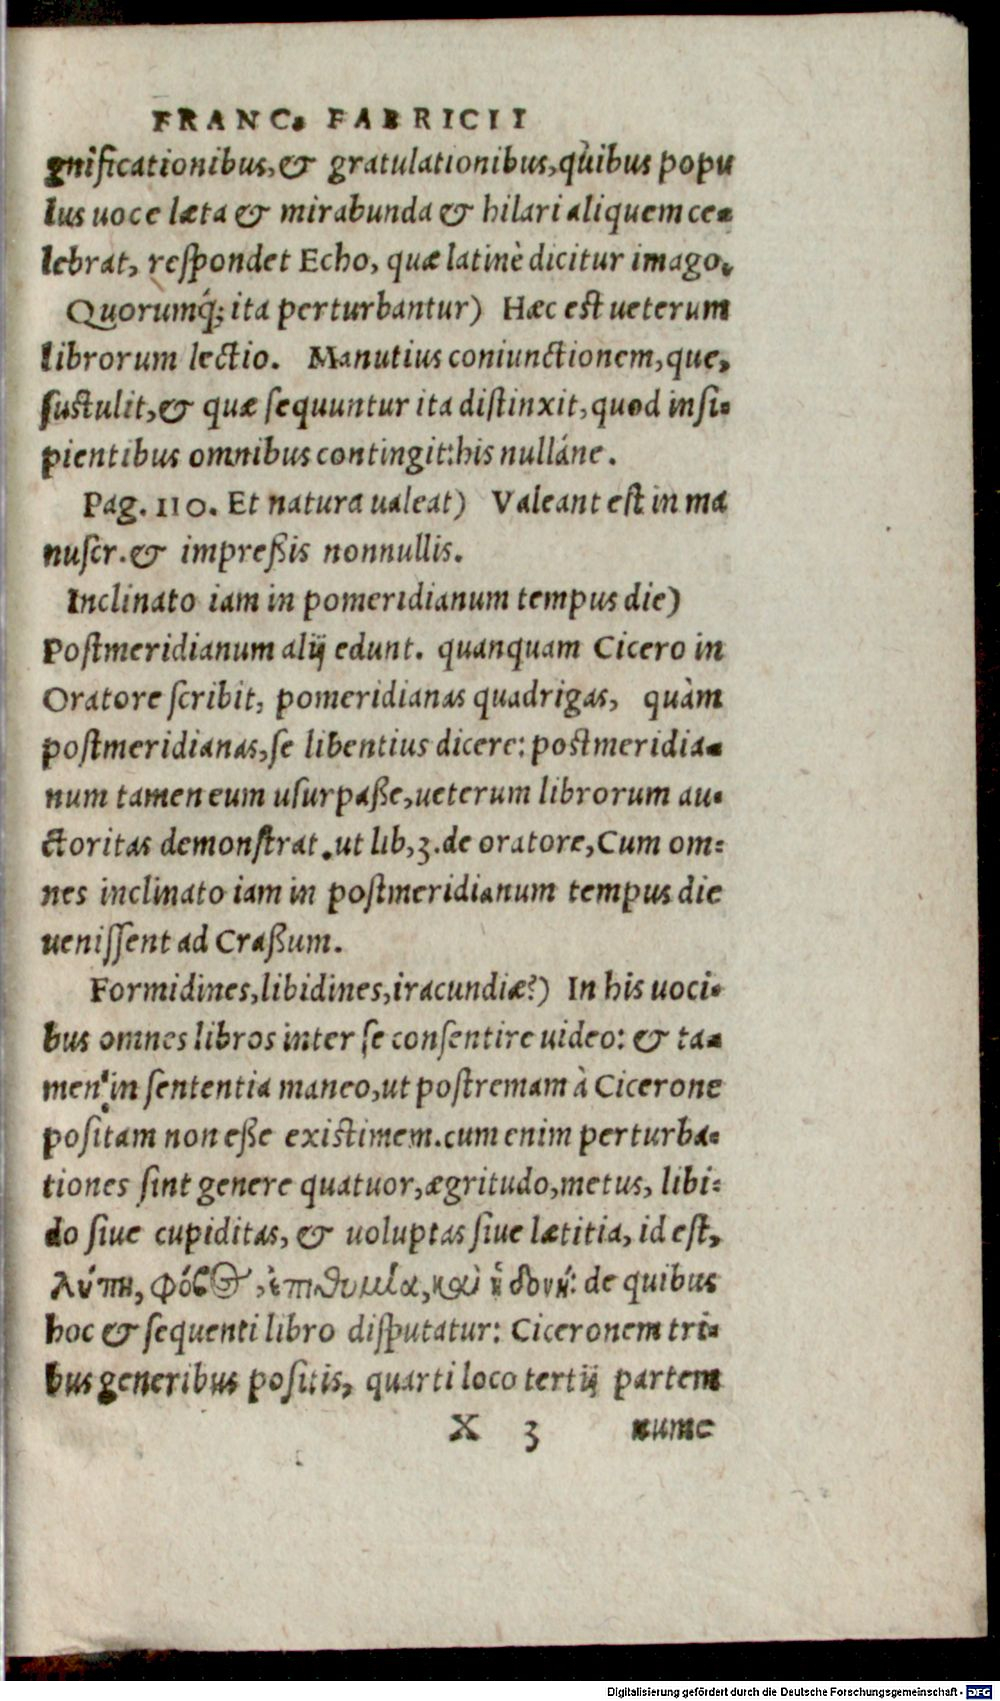 FRANC. FABRICII
gnificationibus, & gratulationibus, quibus popu
lus uoce læta & mirabunda & hilari aliquem ce-
lebrat, respondet Echo, quæ latinè dicitur imago.
Quorumq́; ita perturbantur) Hæc est ueterum
librorum lectio. Manutius coniunctionem, que,
sustulit, & quæ sequuntur ita distinxit, quod insi-
pientibus omnibus contingit: his nulláne.
Pag. 110. Et natura ualeat) Valeant est in ma
nuscr. & impreßis nonnullis.
Inclinato iam in pomeridianum tempus die)
Postmeridianum alij edunt. quanquam Cicero in
Oratore scribit, pomeridianas quadrigas, quàm
postmeridianas, se libentius dicere: postmeridia-
num tamen eum usurpaße, ueterum librorum au-
ctoritas demonstrat. ut lib, 3. de oratore, Cum om-
nes inclinato iam in postmeridianum tempus die
uenissent ad Craßum.
Formidines, libidines, iracundiæ?) In his uoci-
bus omnes libros inter se consentire uideo: & ta-
men in sententia maneo, ut postremam à Cicerone
positam non eße existimem. cum enim perturba-
tiones sint genere quatuor, ægritudo, metus, libi-
do siue cupiditas, & uoluptas siue lætitia, id est,
λύπη, φόβος, ἐπιθυμία, καὶ ἡδονή: de quibus
hoc & sequenti libro disputatur: Ciceronem tri-
bus generibus positis, quarti loco tertij partem
X 3 nume
Digitalisierung gefördert durch die Deutsche Forschungsgemeinschaft - DFG